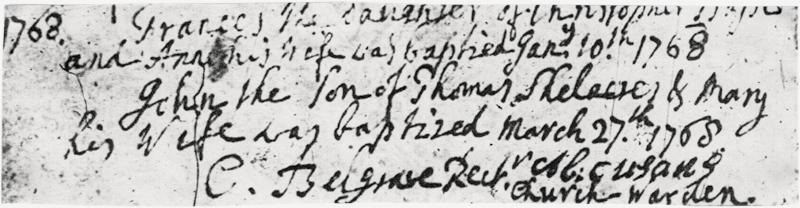 1768. Frances the Daughter of Christopher
and Ann his Wife was baptized Jany. 10.th 1768
John the Son of Thomas & Mary
his Wife was baptized March 27.th 1768
C. Belgrave Rectr.
Church-Warden.